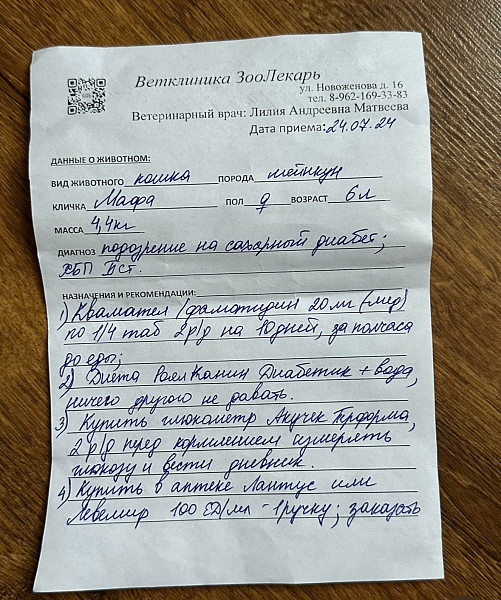 Ветклиника ЗооЛекарь
ул. Новоженова д. 16
тел. 8-962-169-33-83
Ветеринарный врач: Лилия Андреевна Матвеева
Дата приема: 24.07.24
ДАННЫЕ О ЖИВОТНОМ:
ВИД ЖИВОТНОГО кошка ПОРОДА мейнкун
КЛИЧКА Мафа ПОЛ ♀ ВОЗРАСТ 6 л
МАССА 4,4 кг
ДИАГНОЗ подозрение на сахарный диабет;
ХБП II ст.
НАЗНАЧЕНИЯ И РЕКОМЕНДАЦИИ:
1) Квамател / фамотидин 20 мг (мед)
по 1/4 таб 2 р/д на 10 дней, за полчаса
до еды;
2) Диета Роял Канин Диабетик + вода,
ничего другого не давать.
3) Купить глюкометр Акучек Перформа,
2 р/д перед кормлением измерять
глюкозу и вести дневник.
4) Купить в аптеке Лантус или
Левемир 100 ЕД/мл - 1 ручку; заказать